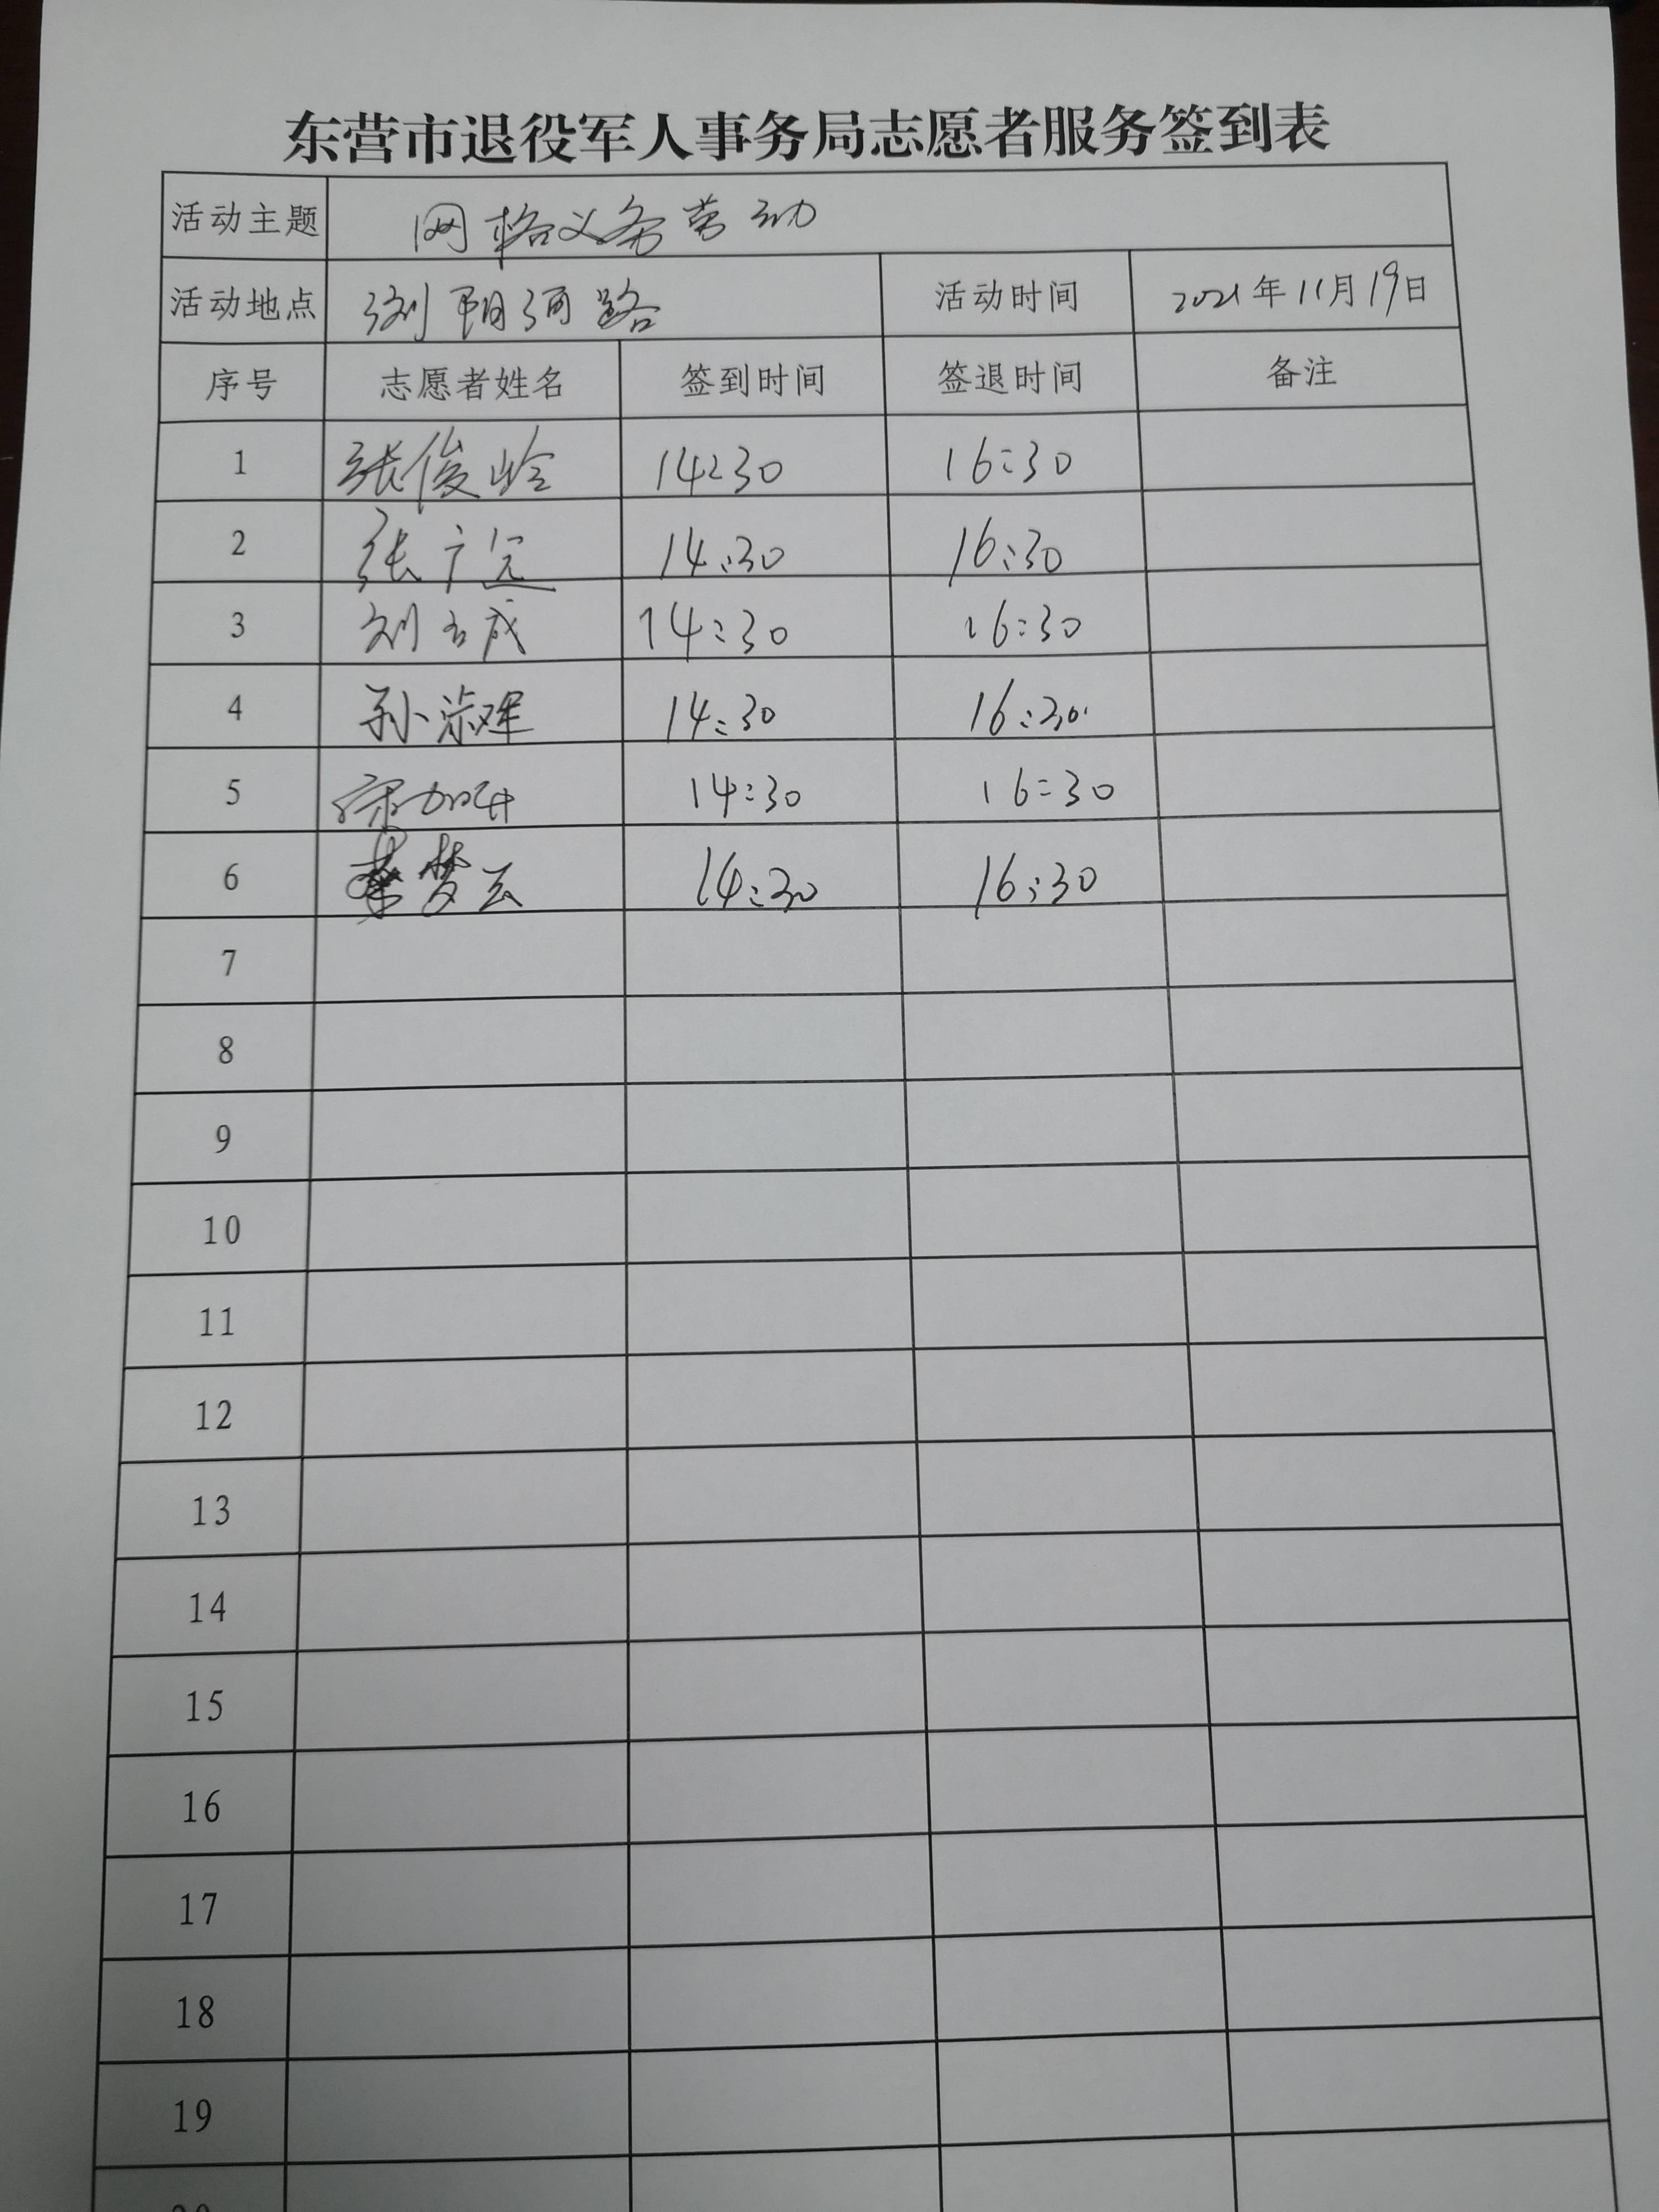 东营市退役军人事务局志愿者服务签到表
活动主题 网格义务劳动
活动地点 浏阳河路 活动时间 2021年11月19日
序号 志愿者姓名 签到时间 签退时间 备注
1 张俊岭 14:30 16:30
2 张广 14:30 16:30
3 刘 成 14:30 16:30
4 孙 14:30 16:30
5 14:30 16:30
6 梦云 14:30 16:30
7
8
9
10
11
12
13
14
15
16
17
18
19
20